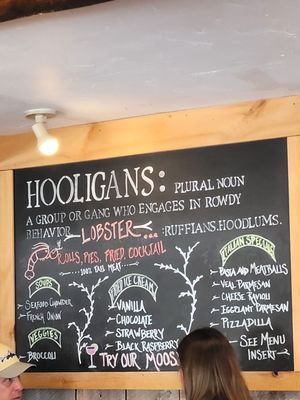 HOOLIGANS: PLURAL NOUN
A GROUP OR GANG WHO ENGAGES IN ROWDY
BEHAVIOR LOBSTER... :RUFFIANS.HOODLUMS.
ROLLS, PIES, FRIED, COCKTAIL
...100% TAIL MEAT...
SOUPS
SEAFOOD CHOWDER
FRENCH ONION
VEGGIES
BROCCOLI
FRIED ICE CREAM
VANILLA
CHOCOLATE
STRAWBERRY
BLACK RASPBERRY
TRY OUR MOOS
ITALIAN SPECIALS
PASTA AND MEATBALLS
VEAL PARMESAN
CHEESE RAVIOLI
EGGPLANT PARMESAN
PIZZADILLA
SEE MENU
INSERT